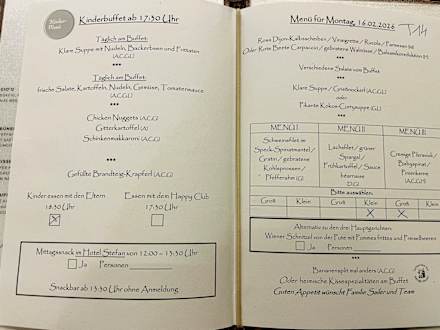 Kinder-
Menü
Kinderbuffet ab 17:30 Uhr
Täglich am Buffet:
Klare Suppe mit Nudeln, Backerbsen und Frittaten
(A,C,G,L)
***
Täglich am Buffet:
frische Salate, Kartoffeln, Nudeln, Gemüse, Tomatensauce
(A,C,G,L)
***
Chicken Nuggets (A,C,G)
Gitterkartoffel (A)
Schinkenmakkaroni (A,C,G)
***
Gefüllte Brandteig-Krapferl (A,C,G)
Kinder essen mit den Eltern
18:30 Uhr
Essen mit dem Happy Club
17:30 Uhr
Mittagssnack im Hotel Stefan von 12:00 – 13:30 Uhr
Ja Personen
Snackbar ab 13:30 Uhr ohne Anmeldung
Menü für Montag, 16.02.2026
T14
Rosa Dijon-Kalbsscheiben / Vinaigrette / Rucola / Parmesan
Oder Rote Beete Carpaccio / gebratene Walnüsse /
***
Verschiedene Salate von Buffet
***
Klare Suppe / Grießnockerl (A,C,G,L)
oder
Pikante Kokos-Currysuppe (G,L)
***
MENÜ I
Schweinefilet im
Speck-Spinatmantel /
Gratin / gebratene
Kohlsprossen /
Pfefferrahm
MENÜ II
Lachsfilet / grüner
Spargel /
Frühkartoffel / Sauce
bearnaise
(D,G)
MENÜ III
Babyspinat /
Pinienkerne
Bitte auswählen.
Groß Klein Groß Klein Groß Klein
X X
Alternativ zu den drei Hauptgerichten:
Wiener Schnitzel von der Pute mit Pommes frittes und Preiselbeeren
Ja Personen
***
Bananensplit mal anders (A,C,G)
Oder heimische Käsespezialitäten am Buffet
Guten Appetit wünscht Familie Sailer und Team